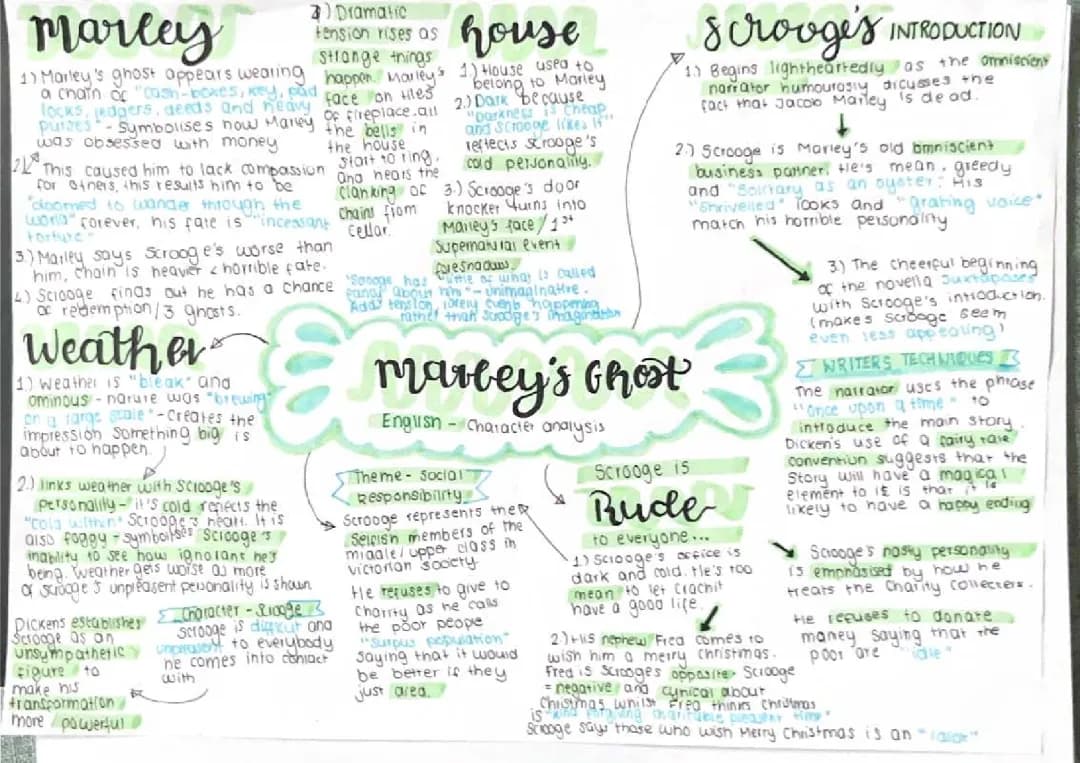 Marley
1) Marley's ghost appears wearing
a chain of "cash-boxes, key, pad
locks, ledgers, deeds and heavy
purses" - Symbolises how Marley
was obsessed with money
2) This caused him to lack compassion
for others, this results him to be
"doomed to wander through the
world" forever, his fate is "incessant
torture"
3.) Marley says Scrooge's worse than
him, chain is heavier & horrible fate.
4.) Scrooge finds out he has a chance
of redemption / 3 ghosts.
3) Dramatic
tension rises as
strange things
happen. Marley's
face on tiles
of fireplace, all
the bells in
the house
start to ring,
and hears the
clanking of
chains from
cellar.
house
1.) House used to
belong to Marley
2.) Dark because
"Darkness is cheap,
and Scrooge likes it"
reflects scrooge's
cold personality.
3.) Scrooge's door
knocker turns into
Marley's face / 1st
supernatural event
foresnadows.
"Scrooge has little of what is called
fancy about him" - unimaginative.
Adds tension, lorely events happening
rather than Scrooge's imagination
Scrooge's INTRODUCTION
1.) Begins lightheartedly as the omniscient
narrator humourously dicusses the
fact that Jacob Marley is dead.
2.) Scrooge is Marley's old omniscient
business partner. He's mean, greedy
and "Solitary as an oyster". His
"Shrivelled" looks and "grating voice"
match his horrible personality
3.) The cheerful beginning
of the novella juxtaposes
with Scrooge's introduction.
(makes Scrooge seem
even less appealing)
WRITER'S TECHNIQUES
The narrator uses the phrase
"once upon a time" to
introduce the main story.
Dicken's use of a fairy tale
convention suggests that the
Story will have a magical
element to it is that it is
likely to have a happy ending
Weather
1.) Weather is "bleak" and
ominous - nature was "brewing
on a large scale" - Creates the
impression something big is
about to happen.
2.) links weather with Scrooge's
personality - it's cold reflects the
"cold within" Scrooge's heart. It is
also foggy - symbolises Scrooge's
inability to see how ignorant he's
being. Weather gets worse as more
of Scrooge's unpleasent personality is shown
Marley's Ghost
English - Character analysis
Dickens establishes
Scrooge as an
unsympathetic
figure to
make his
transformation
more powerful
Character - Scrooge
Scrooge is difficult and
unpleasent to everybody
he comes into contact
with
Theme - Social
Responsibility
Scrooge represents the
Selfish members of the
middle / upper class in
Victorian society.
He refuses to give to
Charity as he calls
the poor people
"surpus population"
Saying that it would
be better is they
just died.
Scrooge is
Rude
to everyone...
1.) Scrooge's office is
dark and cold. He's too
mean to let Crachit
have a good life.
2.) His nephew Fred comes to
wish him a merry Christmas.
Fred is Scrooges opposite. Scrooge
= negative and cynical about
Christmas whilst Fred thinks Christmas
is "kind forgiving charitable pleasent time"
Scrooge says those who wish Merry Christmas is an "idiot"
Scrooge's nasty personality
is emphasised by how he
treats the Charity collecters.
He refuses to donate
money saying that the
poor are "idle"